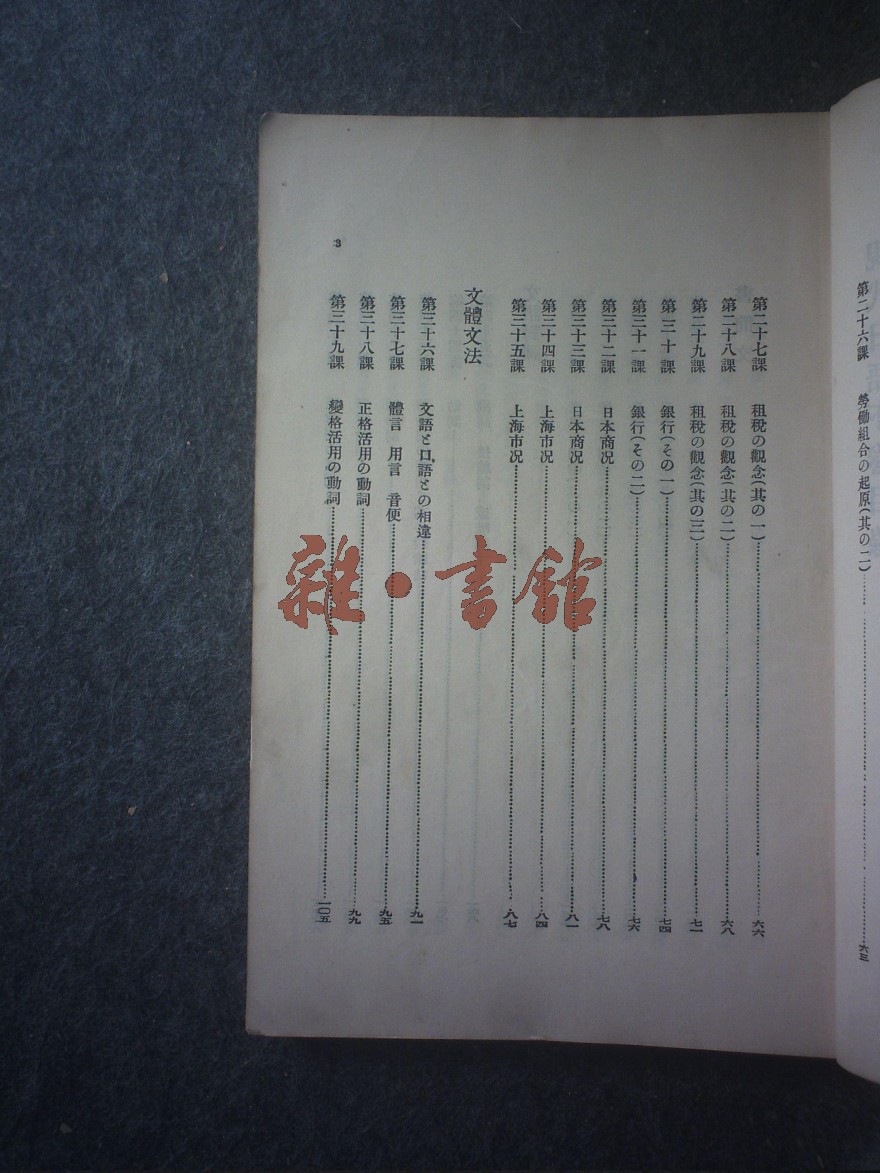 第二十六課　勞働組合の起原(其の二)……六三
第二十七課　租税の觀念(其の一)……六六
第二十八課　租税の觀念(其の二)……六八
第二十九課　租税の觀念(其の三)……七一
第三十課　銀行(その一)……七四
第三十一課　銀行(その二)……七六
第三十二課　日本商况……七八
第三十三課　日本商况……八一
第三十四課　上海市况……八四
第三十五課　上海市况……八七
文體文法
第三十六課　文語と口語との相違……九一
第三十七課　體言　用言　音便……九五
第三十八課　正格活用の動詞……九九
第三十九課　變格活用の動詞……一〇五
3
雜·書館